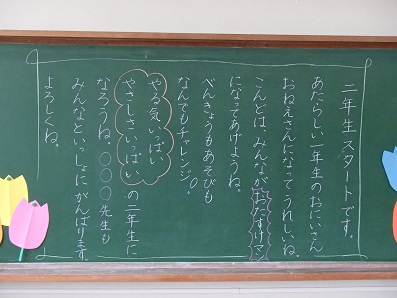 二年生スタートです。
あたらしい一年生のおにいさん
おねえさんになってうれしいね。
こんどは、みんながおたすけマン
になってあげようね。
べんきょうもあそびも
なんでもチャレンジ。
やる気いっぱい
やさしさいっぱいの二年生に
なろうね。〇〇〇先生も
みんなといっしょにがんばります。
よろしくね。